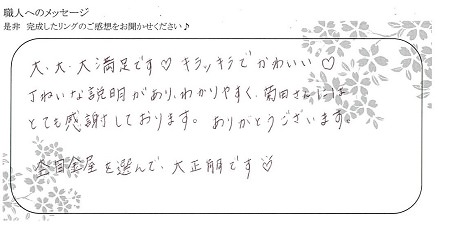 職人へのメッセージ
是非 完成したリングのご感想をお聞かせください♪
大・大・大満足です♡ キラッキラでかわいい♡
丁ねいな説明があり、わかりやすく、菊田さんには
とても感謝しております。ありがとうございます。
杢目金屋を選んで、大正解です♡